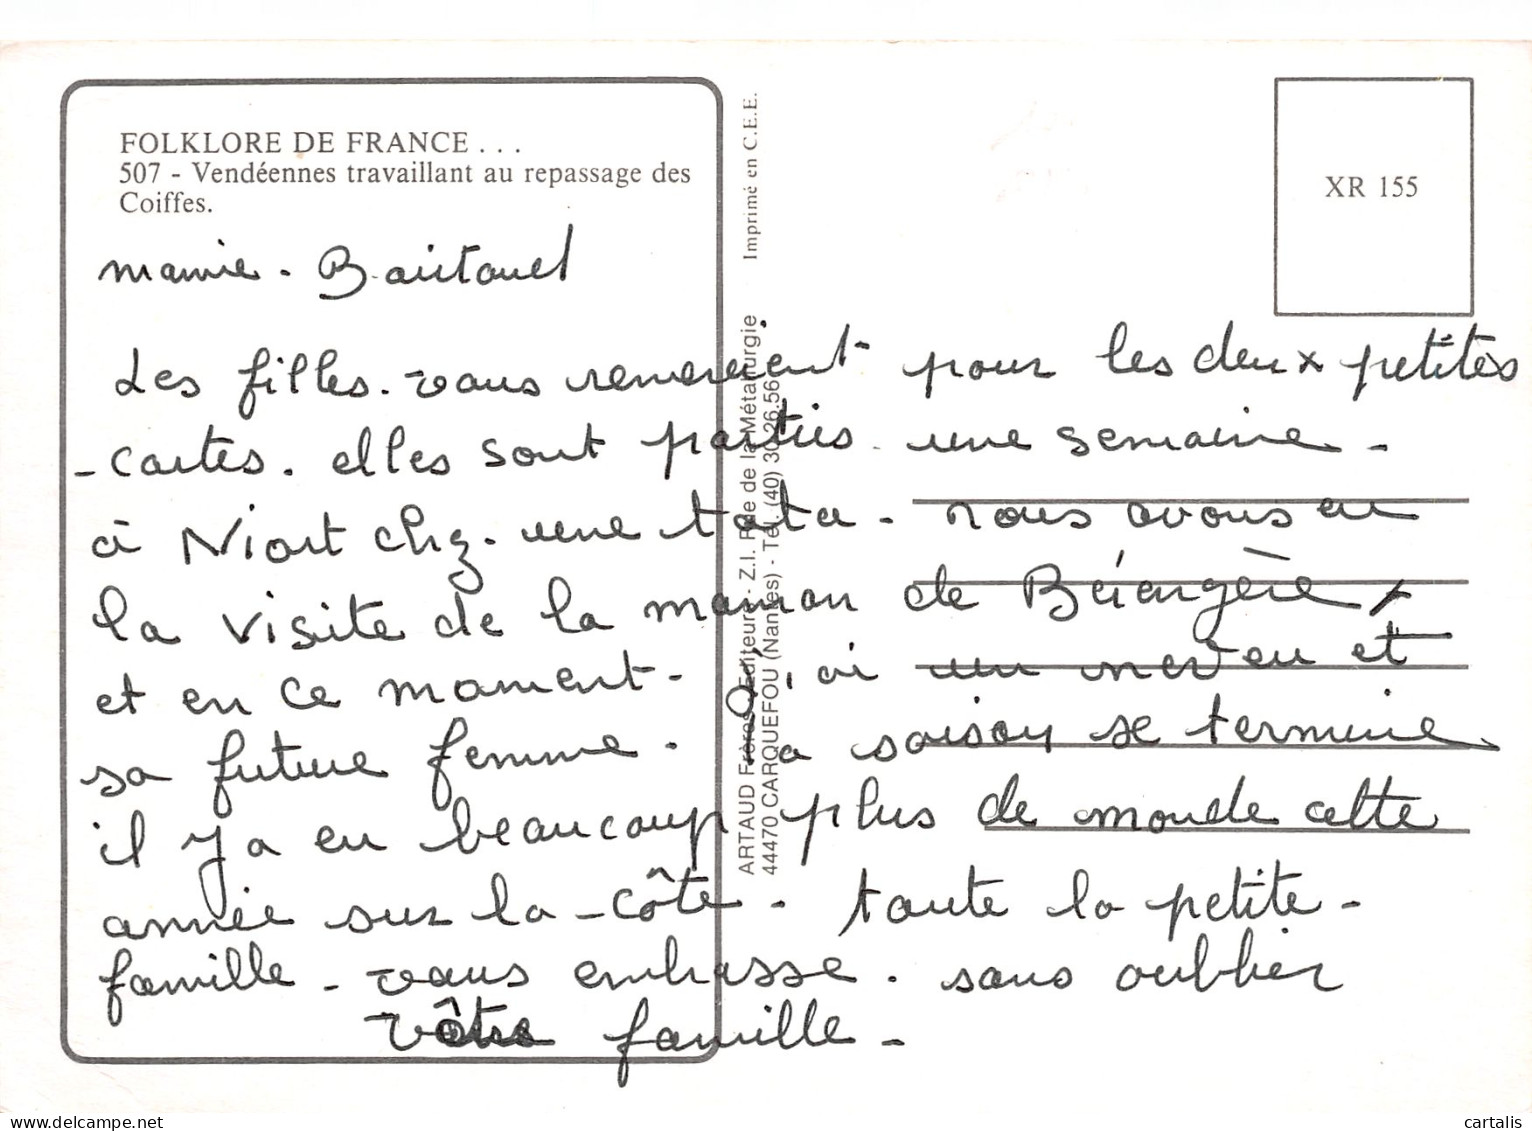 FOLKLORE DE FRANCE . . .
507 - Vendéennes travaillant au repassage des
Coiffes.
XR 155
Imprimé en C.E.E.
ARTAUD Frères Editeurs - Z.I. Rue de la Métallurgie
44470 CARQUEFOU (Nantes) - Tél. (40) 30.26.56
mamie -
Les filles. vous remercient pour les deux petites
- cartes. elles sont parties une semaine -
à Niort chez. une tata. nous avons eu
la visite de la maman de Bérengère
et en ce moment - ai un neveu et
sa future femme. la saison se termine
il y a eu beaucoup plus de monde cette
année sur la - côte - toute la petite -
famille - vous embrasse. sans oublier
vôtre famille -
cartalis
delcampe.net